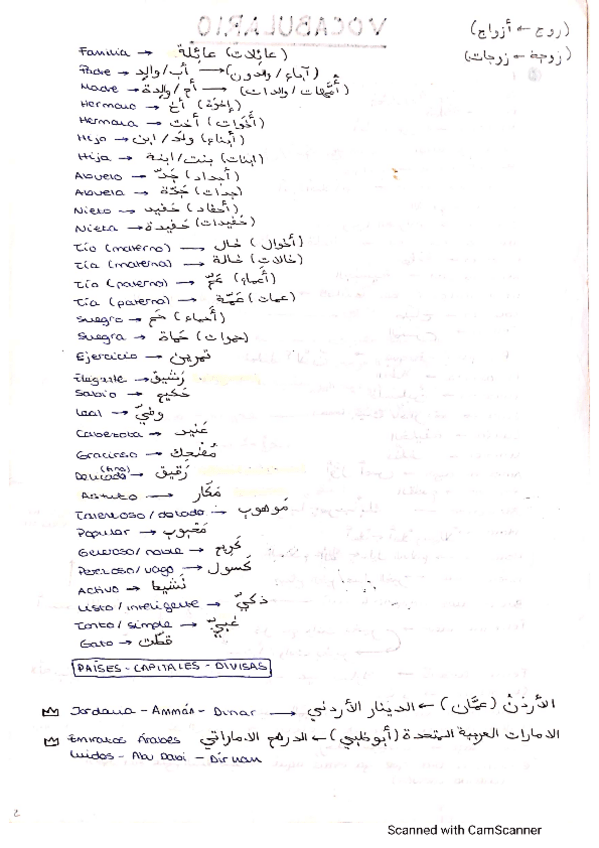 VOCABULARIO
(زوج ← أزواج)
(زوجة ← زوجات)
Familia → عائلة (عائلات)
Padre → أب/والد → (آباء / والدون)
Madre → أم/والدة → (أمهات/والدات)
Hermano → أخ (إخوة)
Hermana → أخت (أخوات)
Hijo → ولد/ابن (أبناء)
Hija → بنت/ابنة (بنات)
Abuelo → جدّ (أجداد)
Abuela → جدّة (جدات)
Nieto → حفيد (أحفاد)
Nieta → حفيدة (حفيدات)
Tío (materno) → خال (أخوال)
Tía (materna) → خالة (خالات)
Tío (paterno) → عمّ (أعماء)
Tía (paterna) → عمّة (عمات)
Suegro → حم (أحماء)
Suegra → حماة (حموات)
Ejercicio → تمرين
Elegante → رشيق
Sabio → حكيم
Leal → وفيّ
Cabezota → عنيد
Gracioso → مُضحك
Delicado (fino) → رقيق
Astuto → مَكّار
Talentoso / dotado → موهوب
Popular → محبوب
Generoso / noble → كريم
Perezoso / vago → كسول
Activo → نشيط
Listo / inteligente → ذكيّ
Tonto / simple → غبيّ
Gato → قطّ
PAÍSES - CAPITALES - DIVISAS
Jordania - Ammán - Dinar → الأردنّ (عمّان) ← الدينار الأردني
Emiratos Árabes الامارات العربية المتحدة (أبو ظبي) ← الدرهم الاماراتي
Unidos - Abu Dabi - Dirham
2
Scanned with CamScanner